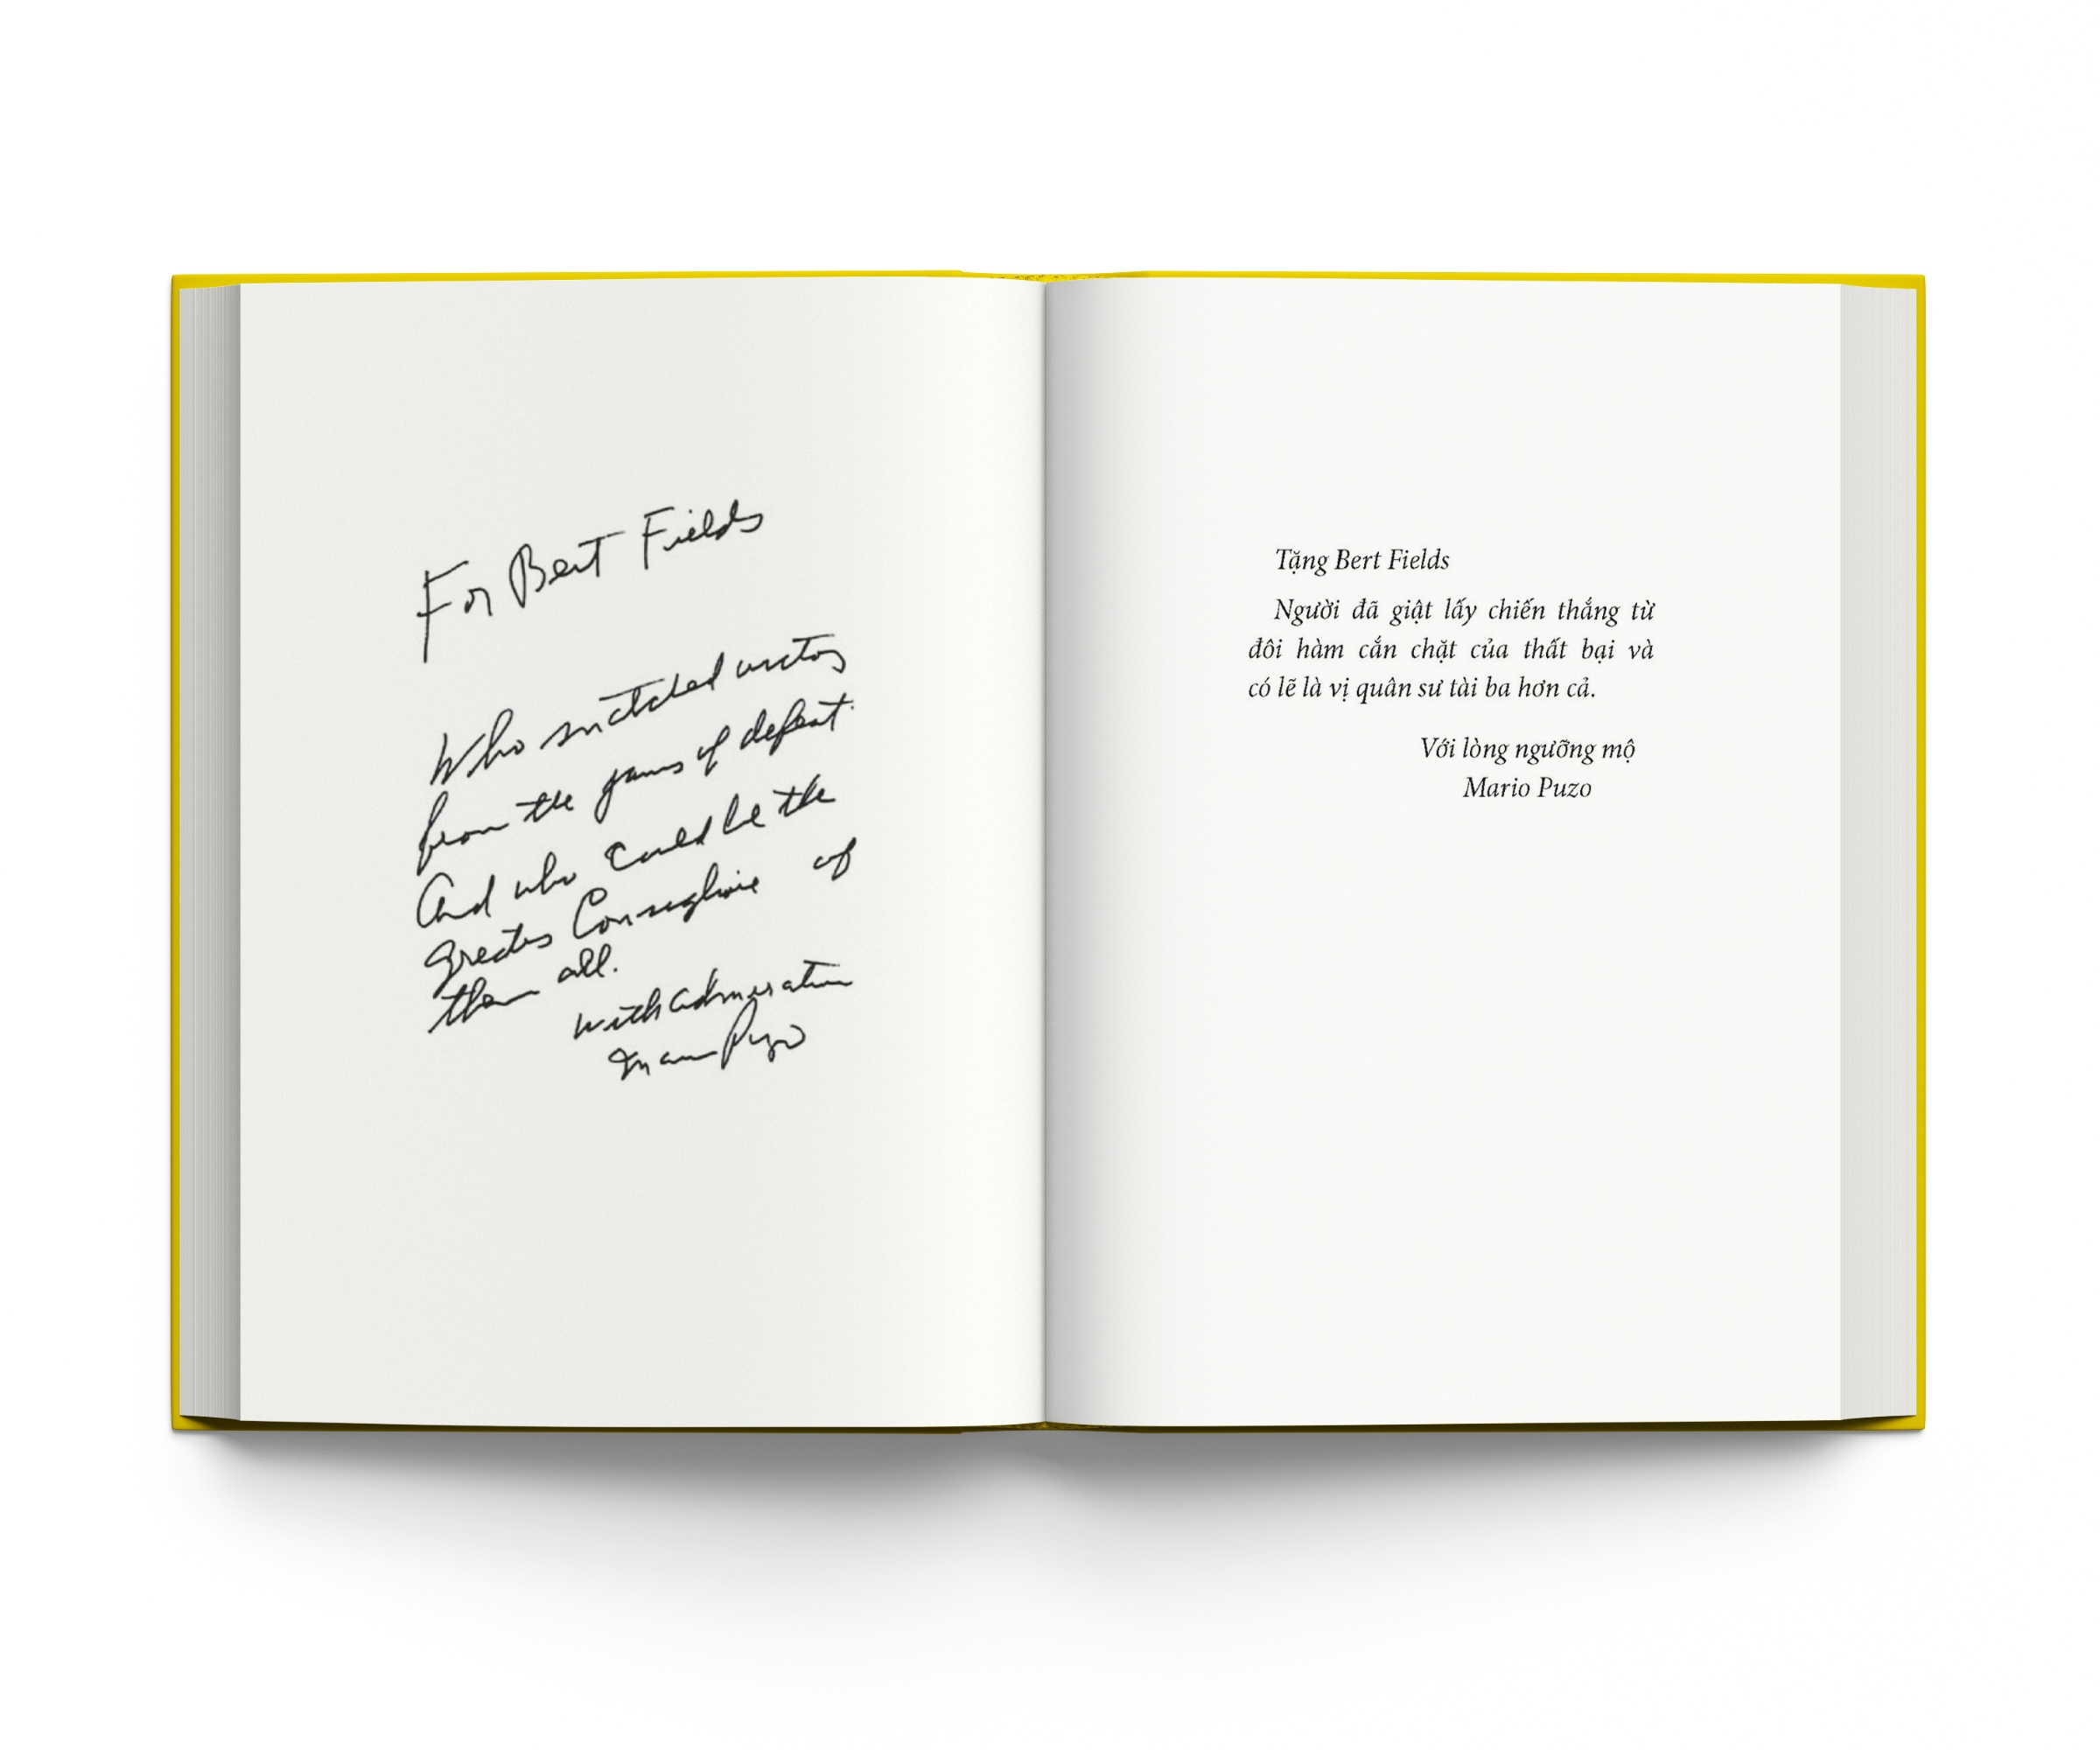 For Bert Fields
Who snatched victory
from the jaws of defeat.
And who could be the
greatest Consigliori of
them all.
with admiration
Mario Puzo
Tặng Bert Fields
Người đã giật lấy chiến thắng từ
đôi hàm cắn chặt của thất bại và
có lẽ là vị quân sư tài ba hơn cả.
Với lòng ngưỡng mộ
Mario Puzo